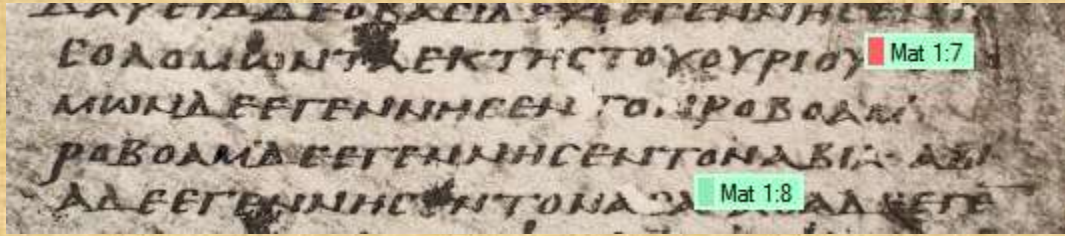 ΔΑΥΕΙΔΔΕΟΒΑΣΙΛΕΥΣΕΓΕΝΝΗΣΕΝΤΟΝ
ϹΟΛΟΜΩΝΤΑΕΚΤΗϹΤΟΥΟΥΡΙΟΥ Mat 1:7
ΜΩΝΔΕΕΓΕΝΝΗϹΕΝΤΟΝΡΟΒΟΑΜ
ΡΟΒΟΑΜΔΕΕΓΕΝΝΗϹΕΝΤΟΝΑΒΙΑ ΑΒΙ
ΑΔΕΕΓΕΝΝΗϹΕΝΤΟΝΑ Mat 1:8 ΔΕΕΓΕ